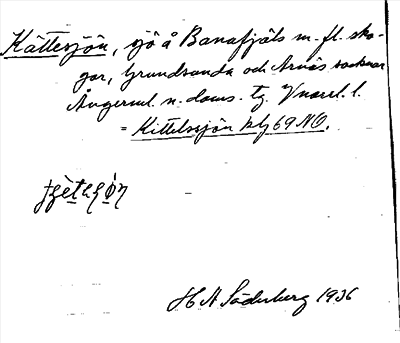 Kättesjön, sjö å Banafjäls m. fl. sko-
gar, Grundsunda och Arnäs socknar
Ångerml. n. doms. tg. Vnorrl. l.
= Kittelssjön blj 69 NO.
H A Söderberg 1936